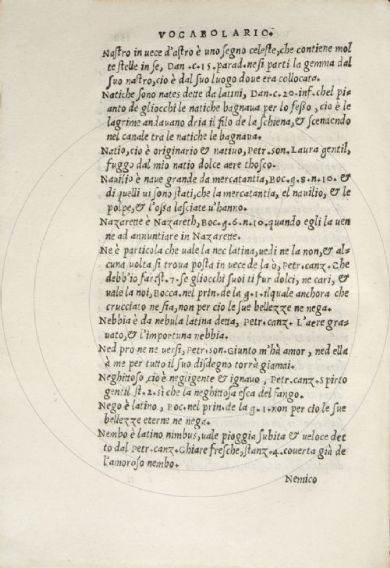 VOCABOLARIO.
Nastro in uece d'astro è uno segno celeste, che contiene mol
te stelle in se, Dan.c.15.parad.nesi parti la gemma dal
suo nastro, cio è dal suo luogo doue era collocata.
Natiche sono nates dette da latini, Dan.c.20.inf.chel pi
anto de gliocchi le natiche bagnaua per lo fesso, cio è le
lagrime andauano dria il filo de la schiena, & scendendo
nel canale tra le natiche le bagnaua.
Natio, cio è originario & natiuo, Petr.son.Laura gentil,
fuggo dal mio natio dolce aere thosco.
Nauilio è naue grande da mercatantia, Boc.g.8.n.10. &
di quelli ui sono stati, che la mercatantia, el nauilio, & le
polpe, & l'ossa lasciate u'hanno.
Nazarette è Nazareth, Boc.g.6.n.10.quando egli la uen
ne ad annuntiare in Nazarette.
Ne è particola che uale la nec latina, uedi ne la non, & al
cuna uolta si troua posta in uece de la ò, Petr.canz.Che
debb'io far.st.7.se gliocchi suoi ti fur dolci, ne cari, &
uale la noi, Bocca.nel prin.de la g.1.il quale anchora che
crucciato ne sia, non per cio le sue bellezze ne nega.
Nebbia è da nebula latina detta, Petr.canz. L'aere gra
uato, & l'importuna nebbia.
Ned pro ne ne uersi, Petr.son.Giunto m'hà amor, ned ella
à me per tutto il suo disdegno torrà giamai.
Neghittoso, cio è negligente & ignauo, Petr.canz.Spirto
gentil st.2.sì che la neghittosa esca del fango.
Nego è latino, Boc.nel prin.de la g.1.non per cio le sue
bellezze eterne ne nega.
Nembo è latino nimbus, uale pioggia subita & ueloce det
to dal Petr.canz.Chiare fresche, stanz.4.couerta già de
l'amoroso nembo.
Nemico